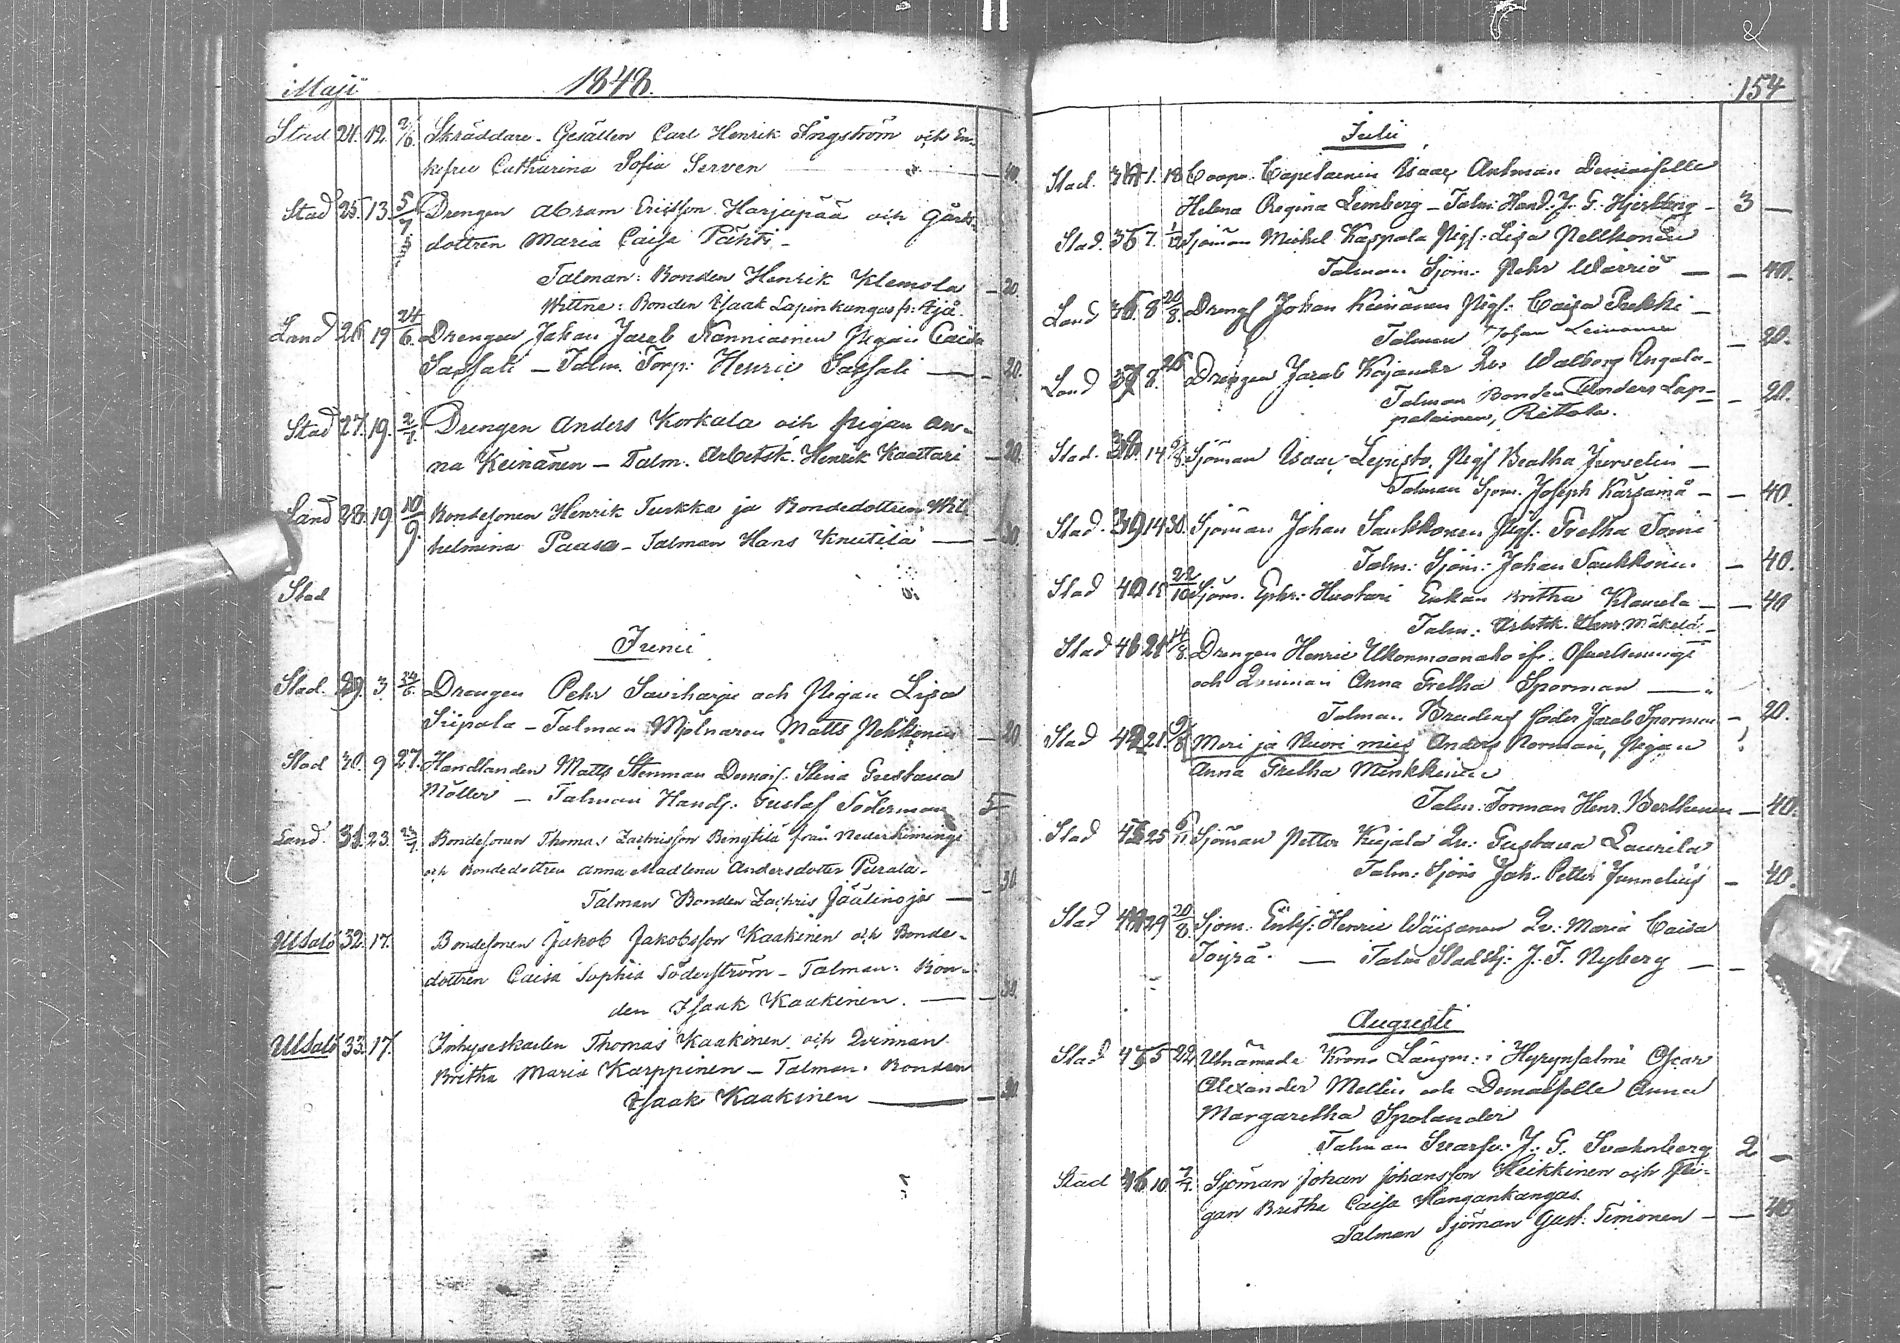 Maji 1848.
Stad 24. 12. 2/6. Skräddare-Gesällen Carl Henrik Ingström och En-
kefru Catharina Sofia Serven — 40.
Stad 25. 13. 5/7 Drengen Abram Ericsson Harjupää och Gårds-
dottren Maria Caisa Pähti —
Talman: Bonden Henrik Klemola — 20.
Wittne: Bonden Isaak Lapinkangas fr:
Land 26 19 24/6. Drengen Johan Jacob Kanniainen Pigan Caisa
Sassali — Talm. Torp: Henric Sassali — 20.
Stad 27. 19. 2/7. Drengen Anders Korkala och pigan An-
na Keinänen — Talm. Arbetsk. Henrik Kaattari — 20.
Land 28. 19. 10/9. Bondesonen Henrik Turkka ja Bondedottren Wil-
helmina Paaso — Talman Hans Knutilä — 30.
Stad
Junii
Stad. 29. 3. 24/6. Drengen Pehr Saviharju och Pigan Lisa
Siipola — Talman Mjölnaren Matts Pekkonen — 20
Stad 30. 9 27. Handlanden Matts Stenman Demois. Stina Gustava
Möller — Talman Handl: Gustaf Söderman 5 —
Land. 31. 23. Bondesonen Thomas Zachrisson Bengtilä från Nederkiminge
och Bondedottren Anna Madlena Andersdotter Purala.
Talman Bonden Zachris Jäälinoja — 30
Utsalo 32. 17. Bondesonen Jakob Jakobsson Kaakinen och Bonde-
dottren Caisa Sophia Söderström — Talman: Bon-
den Isaak Kaakinen. — 30.
Utsalo 33. 17. Inhysekarlen Thomas Kaakinen och Qvinnan
Britha Maria Karppinen — Talman: Bonden
Isaak Kaakinen — 30.
154
Julii
Stad. 1. 18 Coop. Capitainen Isaac Antman Demoiselle
Helena Regina Lemberg — Talm: Hand. J. G. — 3 —
Stad. 7. Sjöman Michel Kaspala Pig: Lisa Pelkonen
Talman Sjöm: Pehr Warrio — 40.
Land 36. 8 20/8. Dreng Johan Keinänen Pig: Caisa Pukki —
Talman Johan — 20.
Land 37 8. 26 Drengen Jacob Kajander Qv: Walborg Ungala-
Talman Bonden Anders Lap-
palainen, — 20.
Stad. 38. 14 Sjöman Isaac Lepistö, Pig Beatha Jurvelin —
Talman Sjöm. Joseph Karsämä — 40.
Stad. 39 14 30. Sjöman Johan Saukkonen Pig: Gretha Tomi
Talm: Sjöm: Johan Saukkonen — 40.
Stad 40 15 22/10 Sjöm. Ephr: Huotari Enkan Britha Klamola — 40
Talm: Arbetsk. Henr. Mäkelä —
Stad 21 Drengen Henric Ukonmaanaho ifr. Öfverkiminge
och Qvinnan Anna Gretha Sporman —
Talman Brudens fader Jacob Sporman — 20.
Stad 42 21. 9/8 Meri ja Nuori mies Anders Norman, Pigan
Anna Gretha Minkkinen
Talm: Forman Henr. — 40.
Stad 43 25 Sjöman Petter Kujala Qv: Gustava Laurila
Talm: Sjöm Joh. Petter Junnelius — 40.
Stad 44 29 20/8. Sjöm. Enkl: Henric Wäisänen Qv: Maria Caisa
Töyrä. — Talm Stadsbj: J. F. Nyberg —
Augusti
Stad 45 5 22. Utnämde Krono Länsm: i Hyrynsalmi Oscar
Alexander Mellin och Demoiselle Anna
Margaretha Spolander
Talman Svarfv: J: G. Svahnberg 2 —
Stad 46 10 Sjöman Johan Johansson Heikkinen och Pi-
gan Britha Caisa Hangankangas.
Talman Sjöman Gust: Timonen — 40